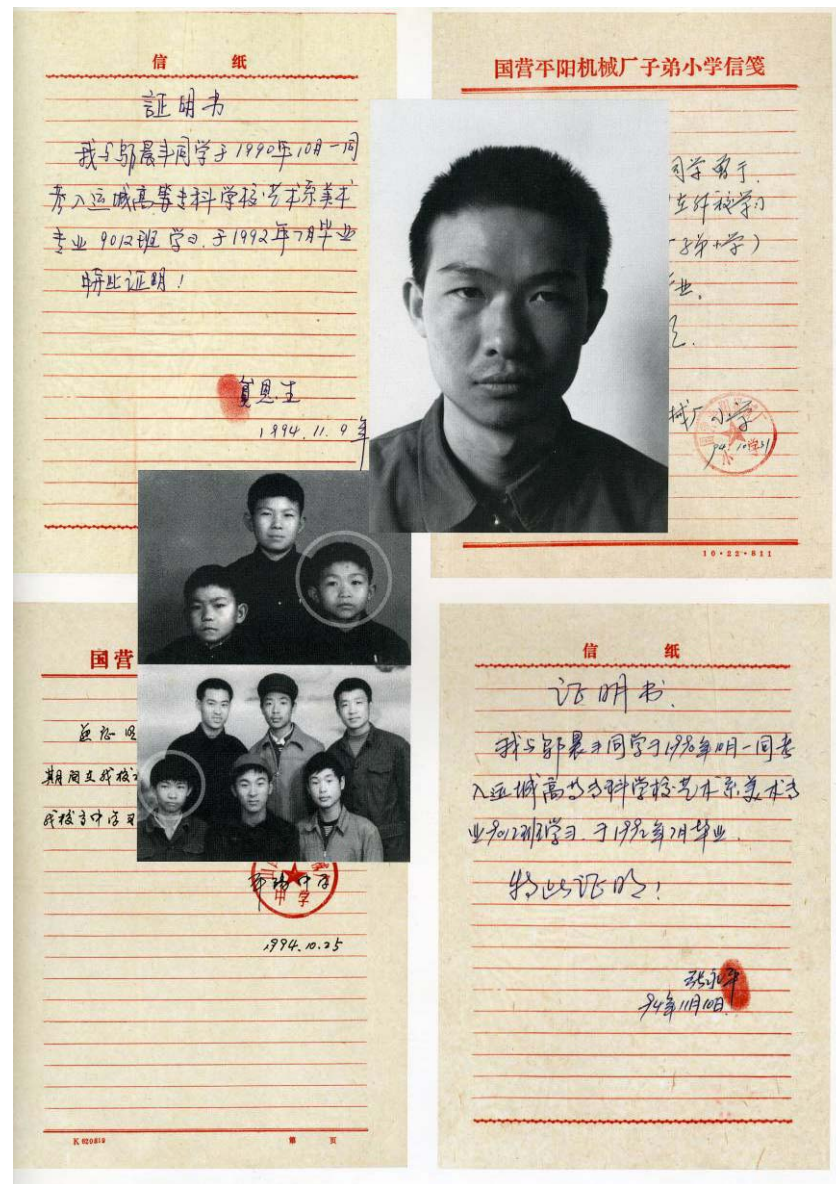 信 纸
証明书
我与郇晨丰同学于1990年10月一同
考入运城高等专科学校艺术系美术
专业 9012班 学习.于1992年7月毕业
特此证明!
贺恩生
1994.11.9年
国营平阳机械厂子弟小学信笺
同学
在我校学习
子弟小学)
业.
械厂小学
94.10.31
10·22·811
国营
兹证明
期间在我校
我校高中学习
中学
1994.10.25
K 020812 第 页
信 纸
证明书.
我与郇晨丰同学于1990年10月一同考
入运城高等专科学校艺术系美术专
业9012班学习.于1992年7月毕业.
特此证明!
张永平
94年11月10日